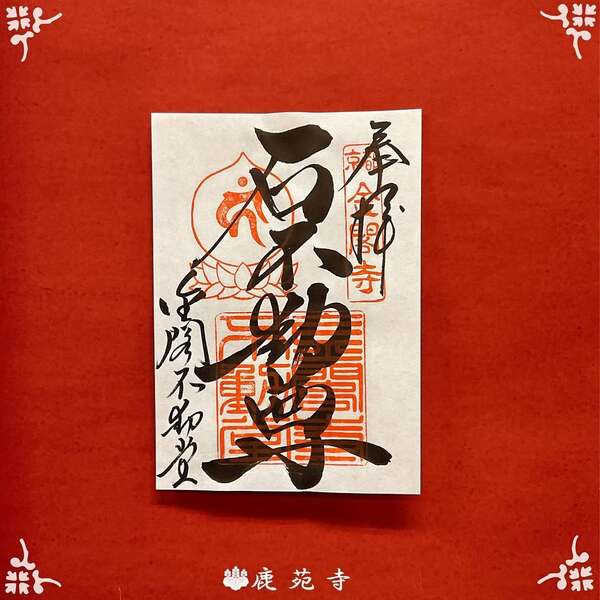 奉拝
京都 金閣寺
石不動尊
金閣不動堂
鹿苑寺